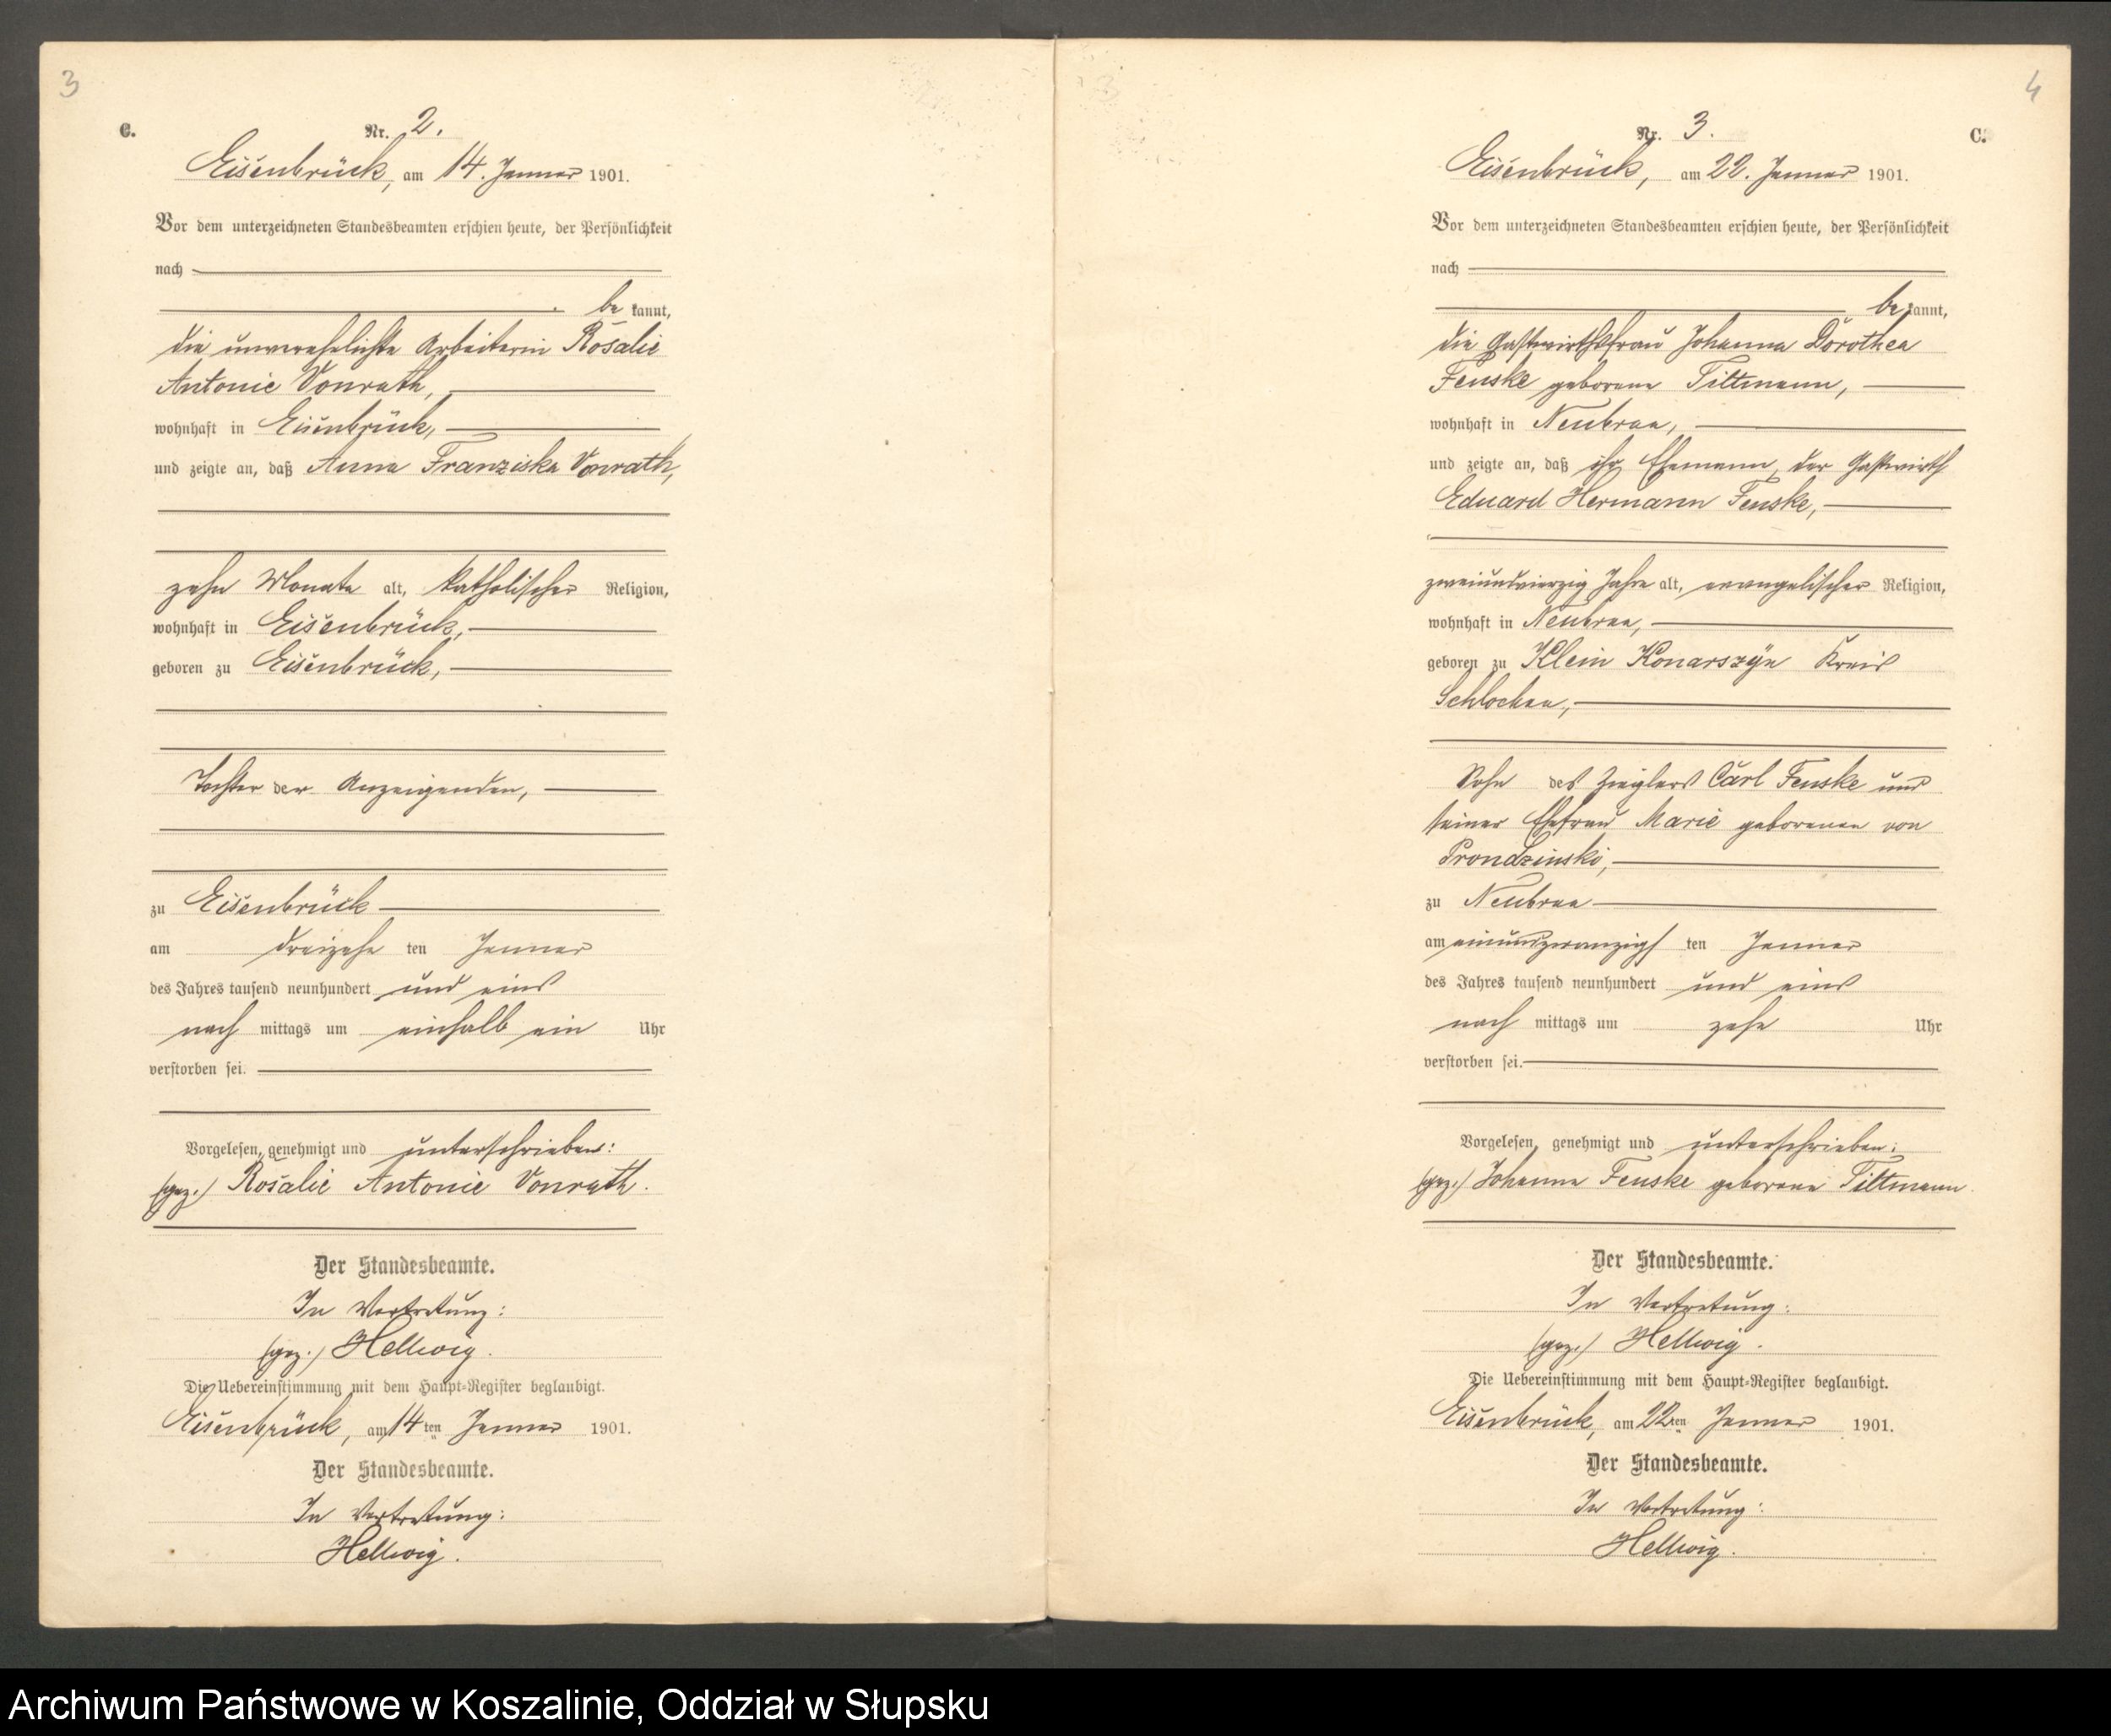 3
C.
Nr. 2.
Eisenbrück, am 14. Januar 1901.
Vor dem unterzeichneten Standesbeamten erschien heute, der Persönlichkeit
nach
be kannt,
die unverehelichte Arbeiterin Rosalie
Antonie Vonrath,
wohnhaft in Eisenbrück,
und zeigte an, daß Anna Franziska Vonrath,
zehn Monate alt, katholischer Religion,
wohnhaft in Eisenbrück,
geboren zu Eisenbrück,
Tochter der Anzeigenden,
zu Eisenbrück
am dreizehn ten Januar
des Jahres tausend neunhundert und eins
nach mittags um einhalb ein Uhr
verstorben sei.
Vorgelesen, genehmigt und unterschrieben:
(gez.) Rosalie Antonie Vonrath.
Der Standesbeamte.
In Vertretung:
(gez.) Hellwig.
Die Uebereinstimmung mit dem Haupt-Register beglaubigt.
Eisenbrück, am 14ten Januar 1901.
Der Standesbeamte.
In Vertretung:
Hellwig.
4
Nr. 3.
C.
Eisenbrück, am 22. Januar 1901.
Vor dem unterzeichneten Standesbeamten erschien heute, der Persönlichkeit
nach
be kannt,
die Gastwirthsfrau Johanna Dorothea
Fenske geborene Tiltmann,
wohnhaft in Neubraa,
und zeigte an, daß ihr Ehemann, der Gastwirth
Eduard Hermann Fenske,
zweiundvierzig Jahre alt, evangelischer Religion,
wohnhaft in Neubraa,
geboren zu Klein Konarszyn Kreis
Schlochau,
Sohn des Zieglers Carl Fenske und
seiner Ehefrau Marie geborenen von
Prondzinski,
zu Neubraa
am einundzwanzigs ten Januar
des Jahres tausend neunhundert und eins
nach mittags um zehn Uhr
verstorben sei.
Vorgelesen, genehmigt und unterschrieben:
(gez.) Johanna Fenske geborene Tiltmann
Der Standesbeamte.
In Vertretung:
(gez.) Hellwig.
Die Uebereinstimmung mit dem Haupt-Register beglaubigt.
Eisenbrück, am 22ten Januar 1901.
Der Standesbeamte.
In Vertretung:
Hellwig.
Archiwum Państwowe w Koszalinie, Oddział w Słupsku